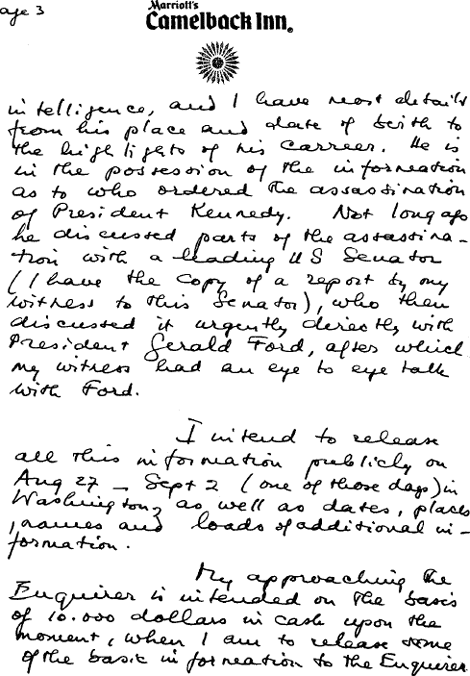 age 3
Marriott's
Camelback Inn.
intelligence, and I have most details
from his place and date of birth to
the highlights of his carreer. He is
in the possession of the information
as to who ordered the assassination
of President Kennedy. Not long ago
he discussed parts of the assassina-
tion with a leading US Senator
(I have the copy of a report by my
witness to this Senator), who then
discussed it urgently directly with
President Gerald Ford, after which
my witness had an eye to eye talk
with Ford.
I intend to release
all this information publicly on
Aug 27 - Sept 2 (one of those days) in
Washington, as well as dates, places
, names and loads of additional in-
formation.
My approaching the
Enquirer is intended on the basis
of 10.000 dollars in cash upon the
moment, when I am to release some
of the basic information to the Enquirer